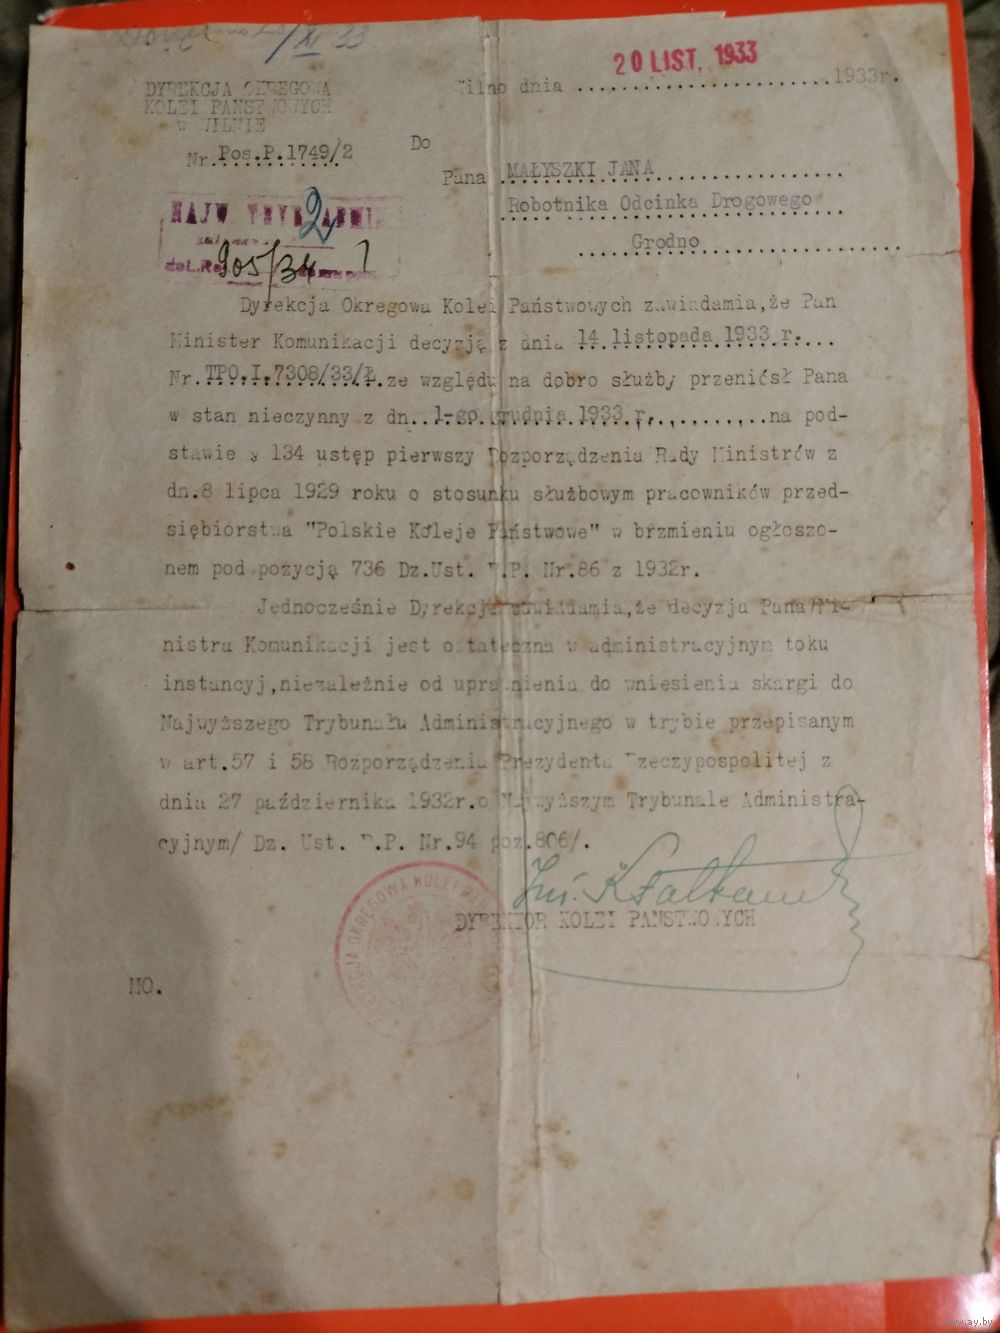 /XI 33
20 LIST. 1933
DYREKCJA OKRĘGOWA
KOLEI PAŃSTWOWYCH
W WILNIE
Wilno dnia ........................1933r.
Nr.Pos.P.1749/2
Do
Pana MAŁYSZKI JANA
Robotnika Odcinka Drogowego
Grodno
NAJW TRYB ADMIN
2
905/34 1
Dyrekcja Okręgowa Kolei Państwowych zawiadamia,że Pan
Minister Komunikacji decyzją z dnia 14 listopada 1933 r.
Nr.TPO.I.7308/33/Ł.ze względu na dobro służby przeniósł Pana
w stan nieczynny z dn..1-go grudnia 1933 r............na pod-
stawie § 134 ustęp pierwszy Rozporządzenia Rady Ministrów z
dn.8 lipca 1929 roku o stosunku służbowym pracowników przed-
siębiorstwa "Polskie Koleje Państwowe" w brzmieniu ogłoszo-
nem pod pozycją 736 Dz.Ust. R.P. Nr.86 z 1932r.
Jednocześnie Dyrekcja zawiadamia,że decyzja Pana Mi-
nistra Komunikacji jest ostateczna w administracyjnym toku
instancyj,niezależnie od uprawnienia do wniesienia skargi do
Najwyższego Trybunału Administracyjnego w trybie przepisanym
w art.57 i 58 Rozporządzenia Prezydenta Rzeczypospolitej z
dnia 27 października 1932r.o Najwyższym Trybunale Administra-
cyjnym/ Dz. Ust. R.P. Nr.94 poz.806/.
DYREKCJA OKRĘGOWA KOLEI
Inż. K Falkowski
DYREKTOR KOLEI PAŃSTWOWYCH
MO.
www.ay.by